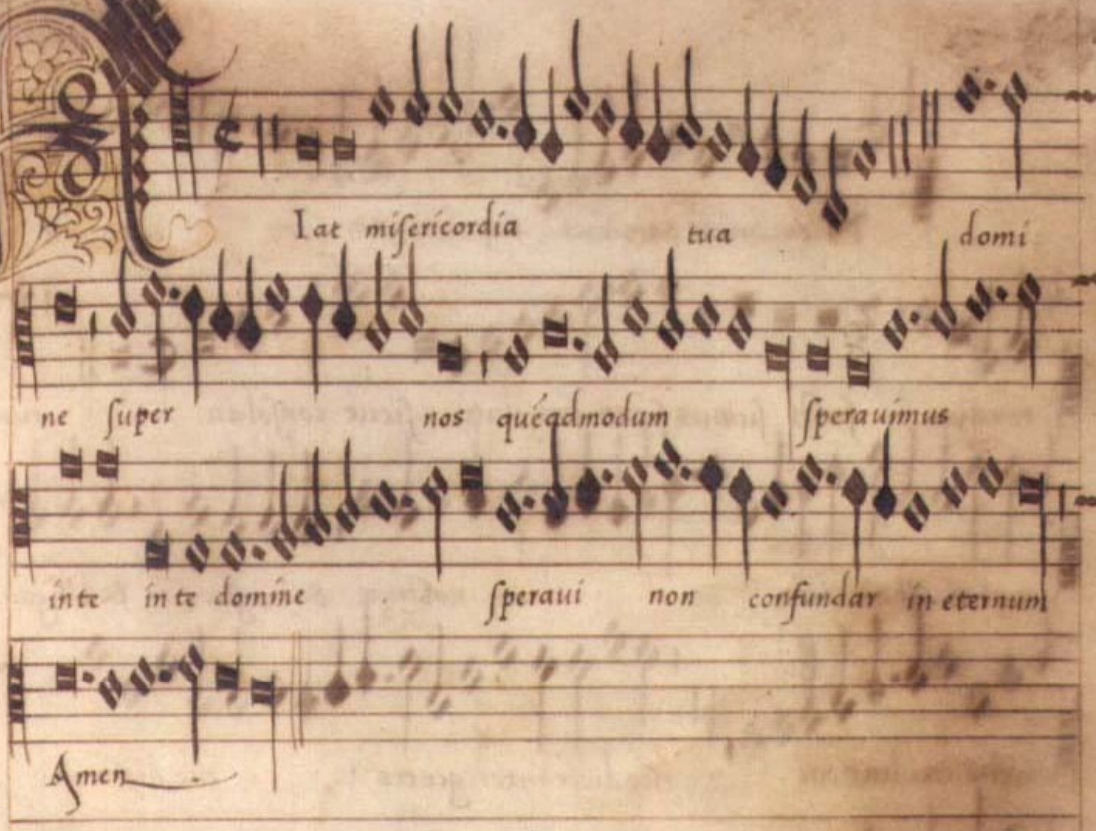 Fiat miſericordia tua domi
ne ſuper nos quéadmodum ſperauimus
in te in te domine ſperaui non confundar in eternum
Amen